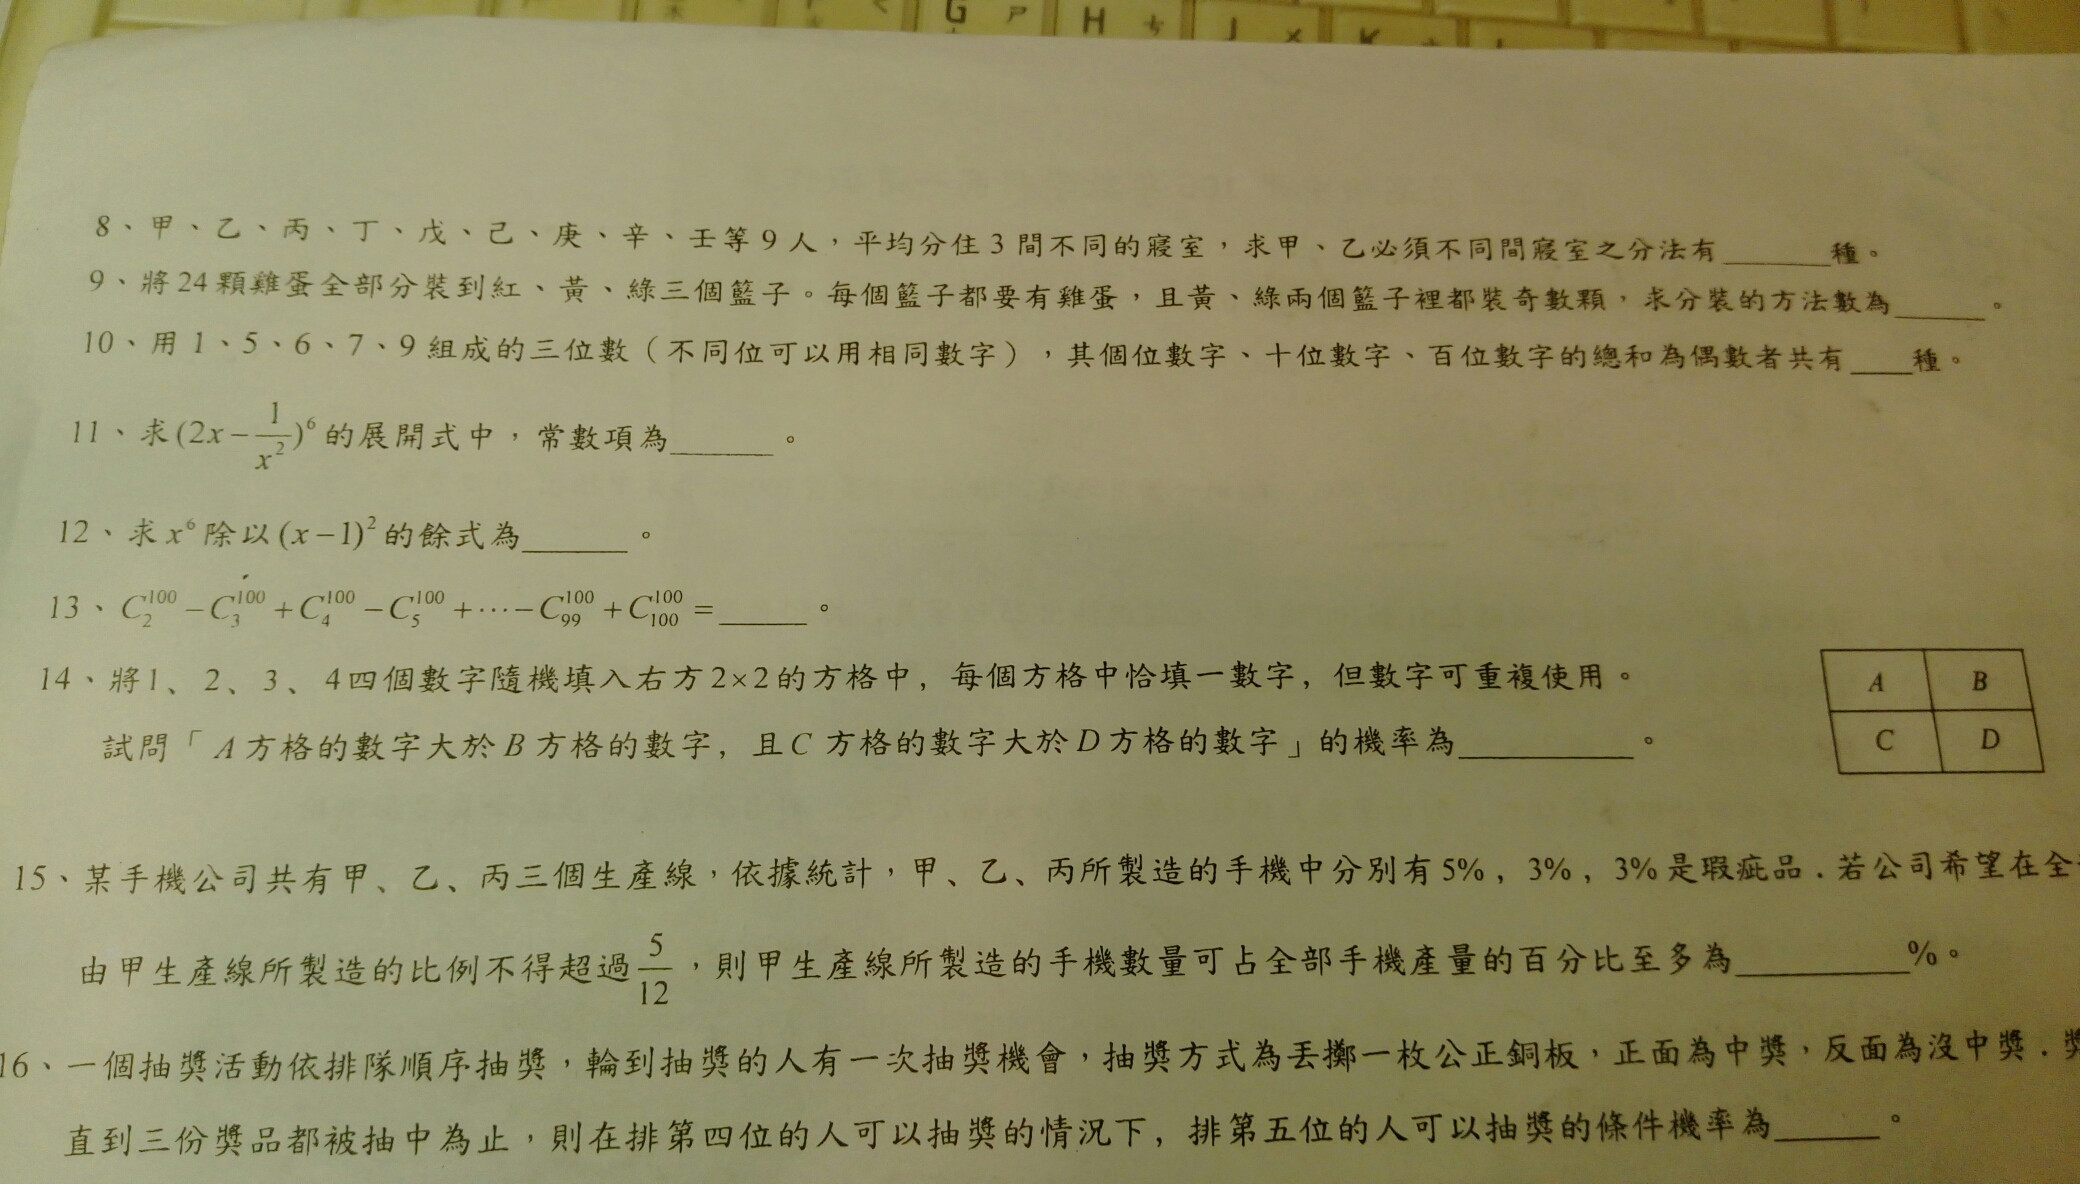 G ㄕ H ㄘ J K
8、甲、乙、丙、丁、戊、己、庚、辛、壬等9人，平均分住3間不同的寢室，求甲、乙必須不同間寢室之分法有______種。
9、將24顆雞蛋全部分裝到紅、黃、綠三個籃子。每個籃子都要有雞蛋，且黃、綠兩個籃子裡都裝奇數顆，求分裝的方法數為______。
10、用1、5、6、7、9組成的三位數（不同位可以用相同數字），其個位數字、十位數字、百位數字的總和為偶數者共有____種。
11、求(2x－1/x²)⁶的展開式中，常數項為______。
12、求x⁶除以(x－1)²的餘式為______。
13、C₂¹⁰⁰－C₃¹⁰⁰＋C₄¹⁰⁰－C₅¹⁰⁰＋⋯－C₉₉¹⁰⁰＋C₁₀₀¹⁰⁰＝______。
14、將1、2、3、4四個數字隨機填入右方2×2的方格中，每個方格中恰填一數字，但數字可重複使用。
試問「A方格的數字大於B方格的數字，且C方格的數字大於D方格的數字」的機率為__________。
A B
C D
15、某手機公司共有甲、乙、丙三個生產線，依據統計，甲、乙、丙所製造的手機中分別有5%，3%，3%是瑕疵品．若公司希望在全
由甲生產線所製造的比例不得超過5/12，則甲生產線所製造的手機數量可占全部手機產量的百分比至多為__________%。
16、一個抽獎活動依排隊順序抽獎，輪到抽獎的人有一次抽獎機會，抽獎方式為丟擲一枚公正銅板，正面為中獎，反面為沒中獎．獎
直到三份獎品都被抽中為止，則在排第四位的人可以抽獎的情況下，排第五位的人可以抽獎的條件機率為______。